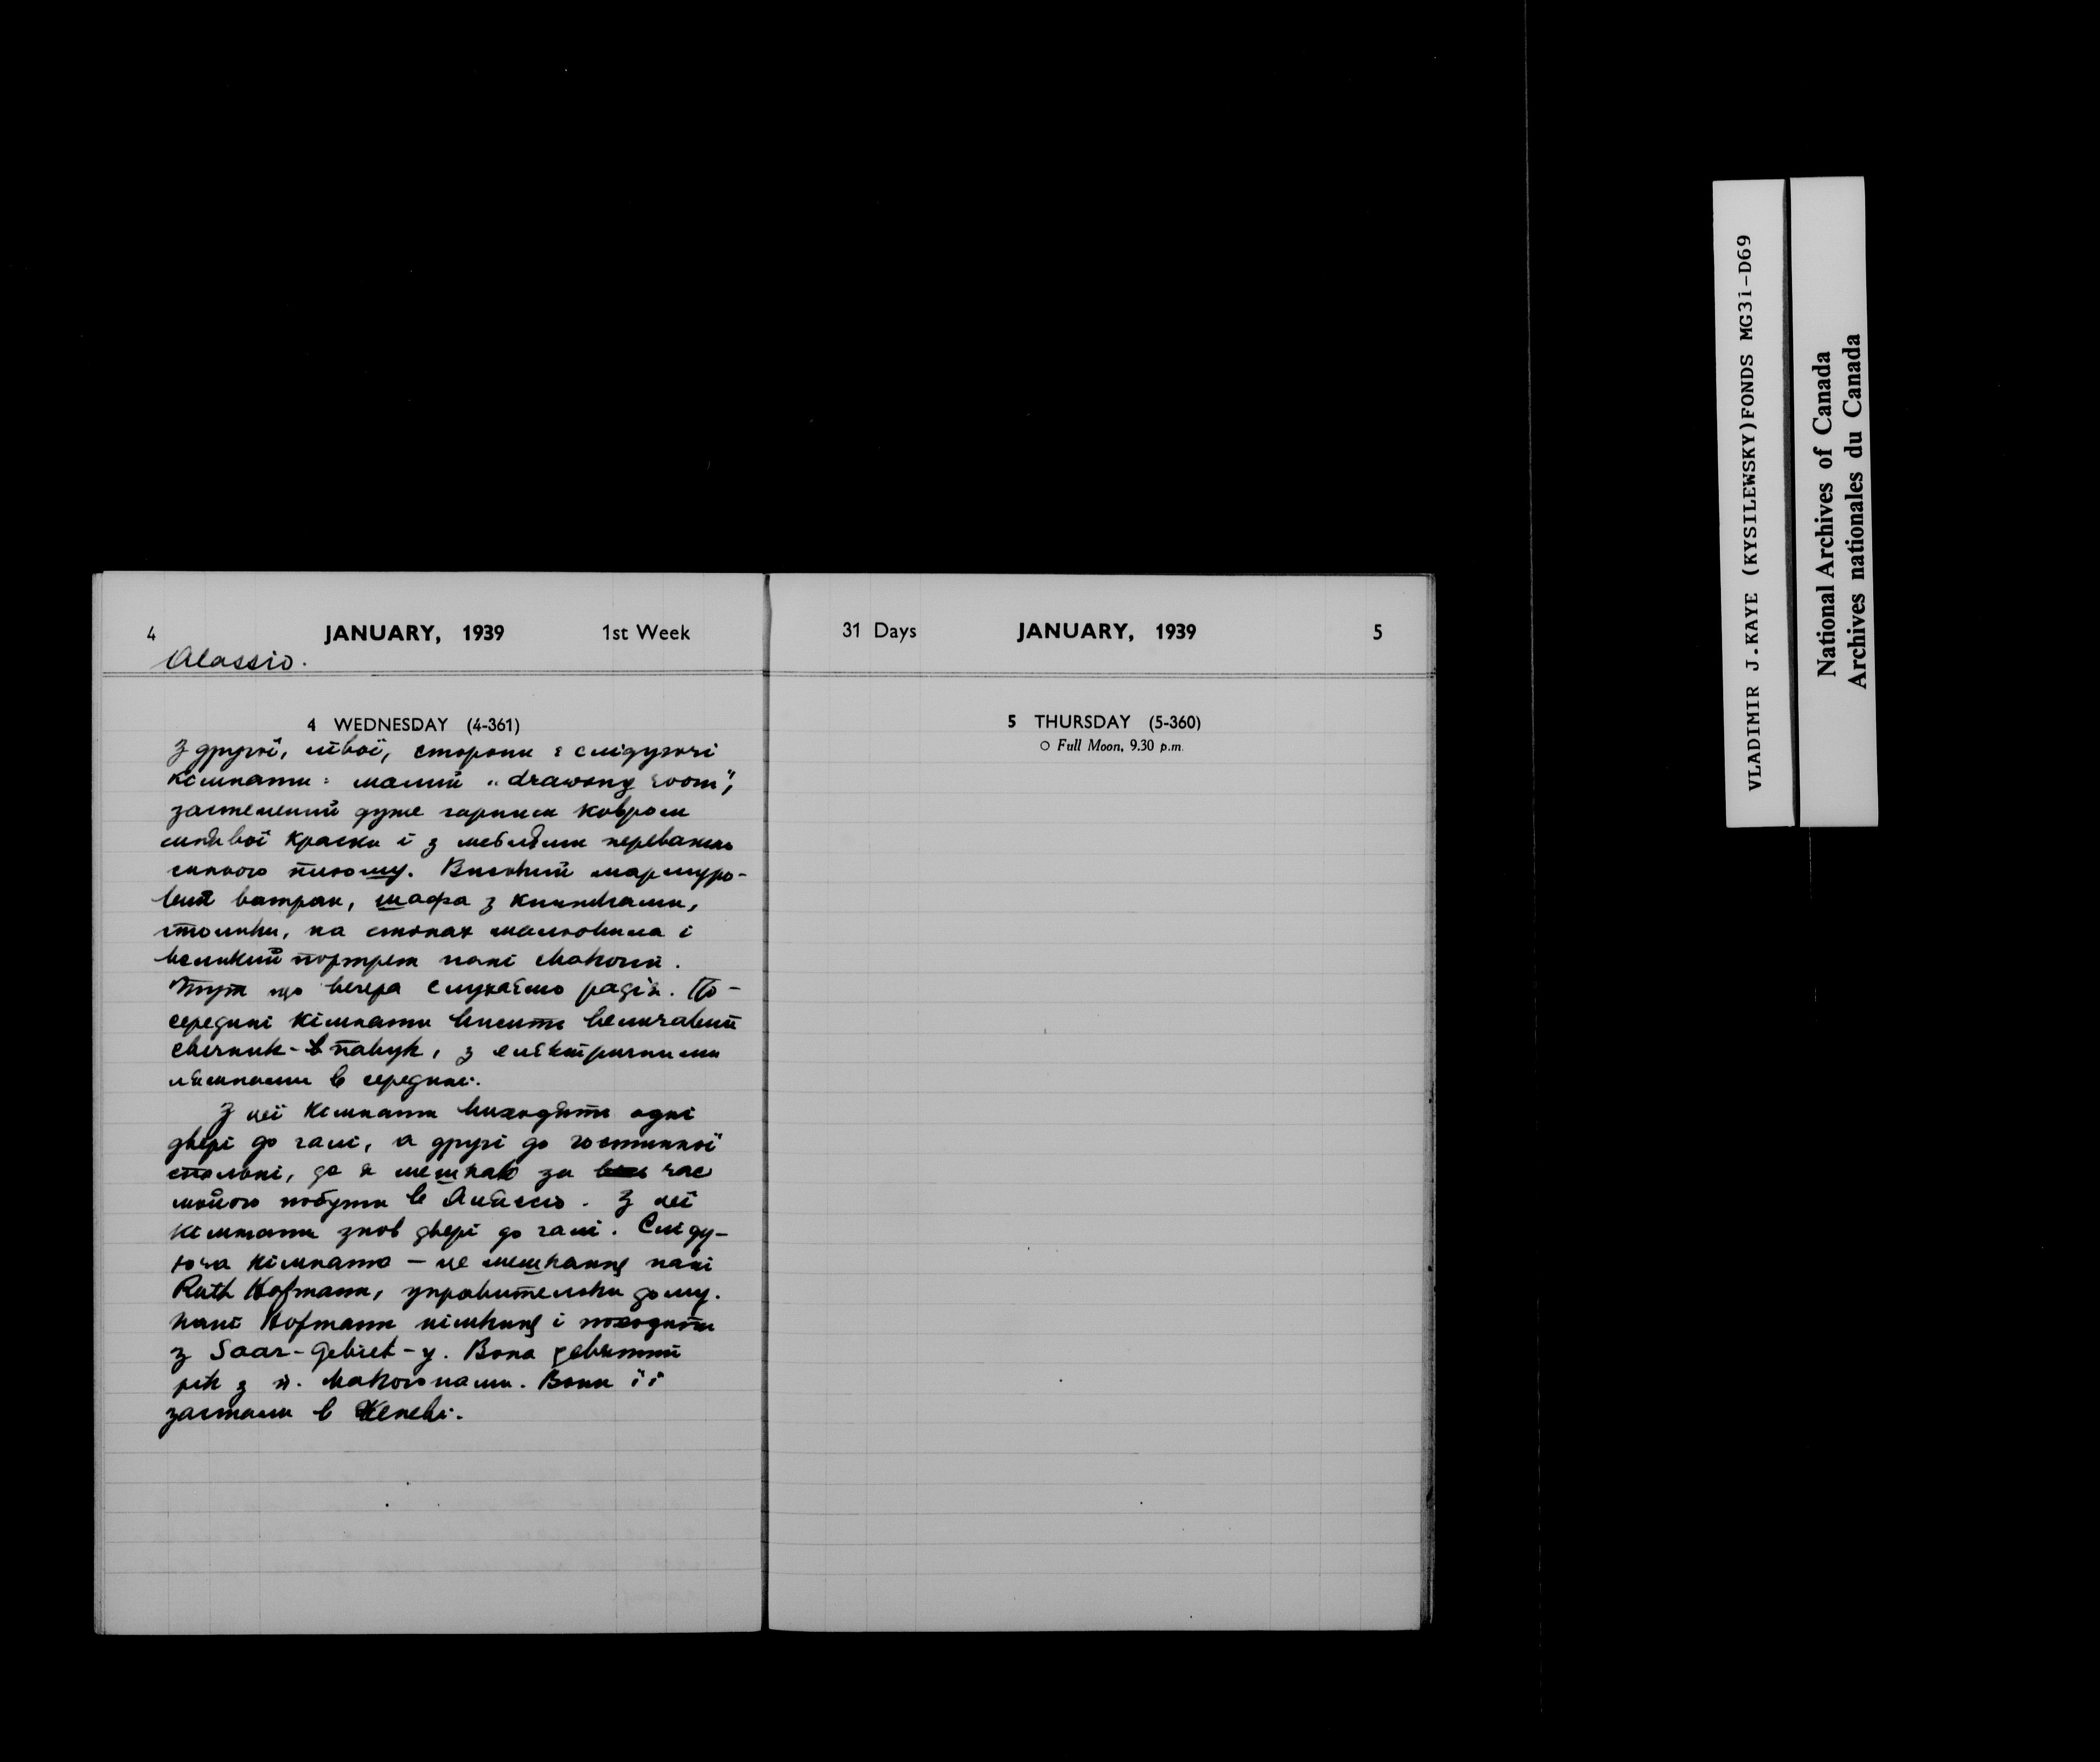 4 JANUARY, 1939 1st Week
Alassio.
4 WEDNESDAY (4-361)
З другої, лівої, сторони є слідуючі
кімнати: малий „drawing room",
застелений дуже гарним ковром
краски і з меблями переважно
того самого Високий мармуро-
вий ватран, шафа з книжками,
столики, на стінах мальовила і
великий портрет пані Макогін.
Тут що вечера слухаємо радія. По-
середині кімнати висить величавий
свічник-павук, з електричними
лямпами в середині.
З цеї кімнати виходять одні
двері до галі, а другі до гостинної
спальні, де я мешкаю за час
мойого побуту в Алассіо. З цеї
кімнати знов двері до галі. Сліду-
юча кімната – це мешканнє пані
Ruth Hofmann, управительки дому.
Пані Hofmann німкинє і походить
з Saar-Gebiet-у. Вона девятий
рік з п. Макогонами. Вони її
застали в Женеві.
31 Days JANUARY, 1939 5
5 THURSDAY (5-360)
○ Full Moon, 9.30 p.m.
VLADIMIR J.KAYE (KYSILEWSKY)FONDS MG31-D69
National Archives of Canada
Archives nationales du Canada